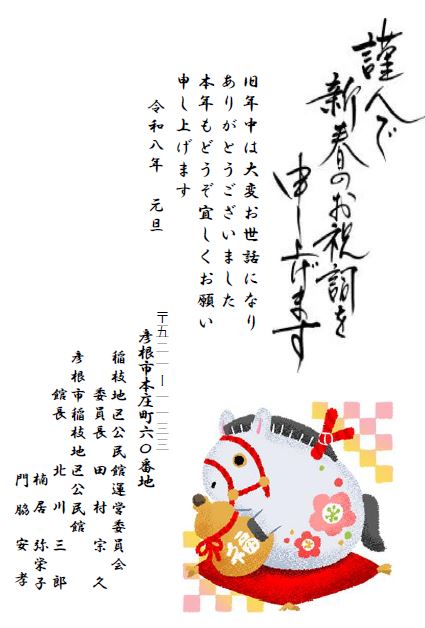 謹んで
新春のお祝詞を
申し上げます
旧年中は大変お世話になり
ありがとうございました
本年もどうぞ宜しくお願い
申し上げます
令和八年 元旦
〒五二一ー一一三三
彦根市本庄町六〇番地
稲枝地区公民館運営委員会
委員長 田村宗久
彦根市稲枝地区公民館
館長 北川三郎
楠居弥栄子
門脇安孝
福